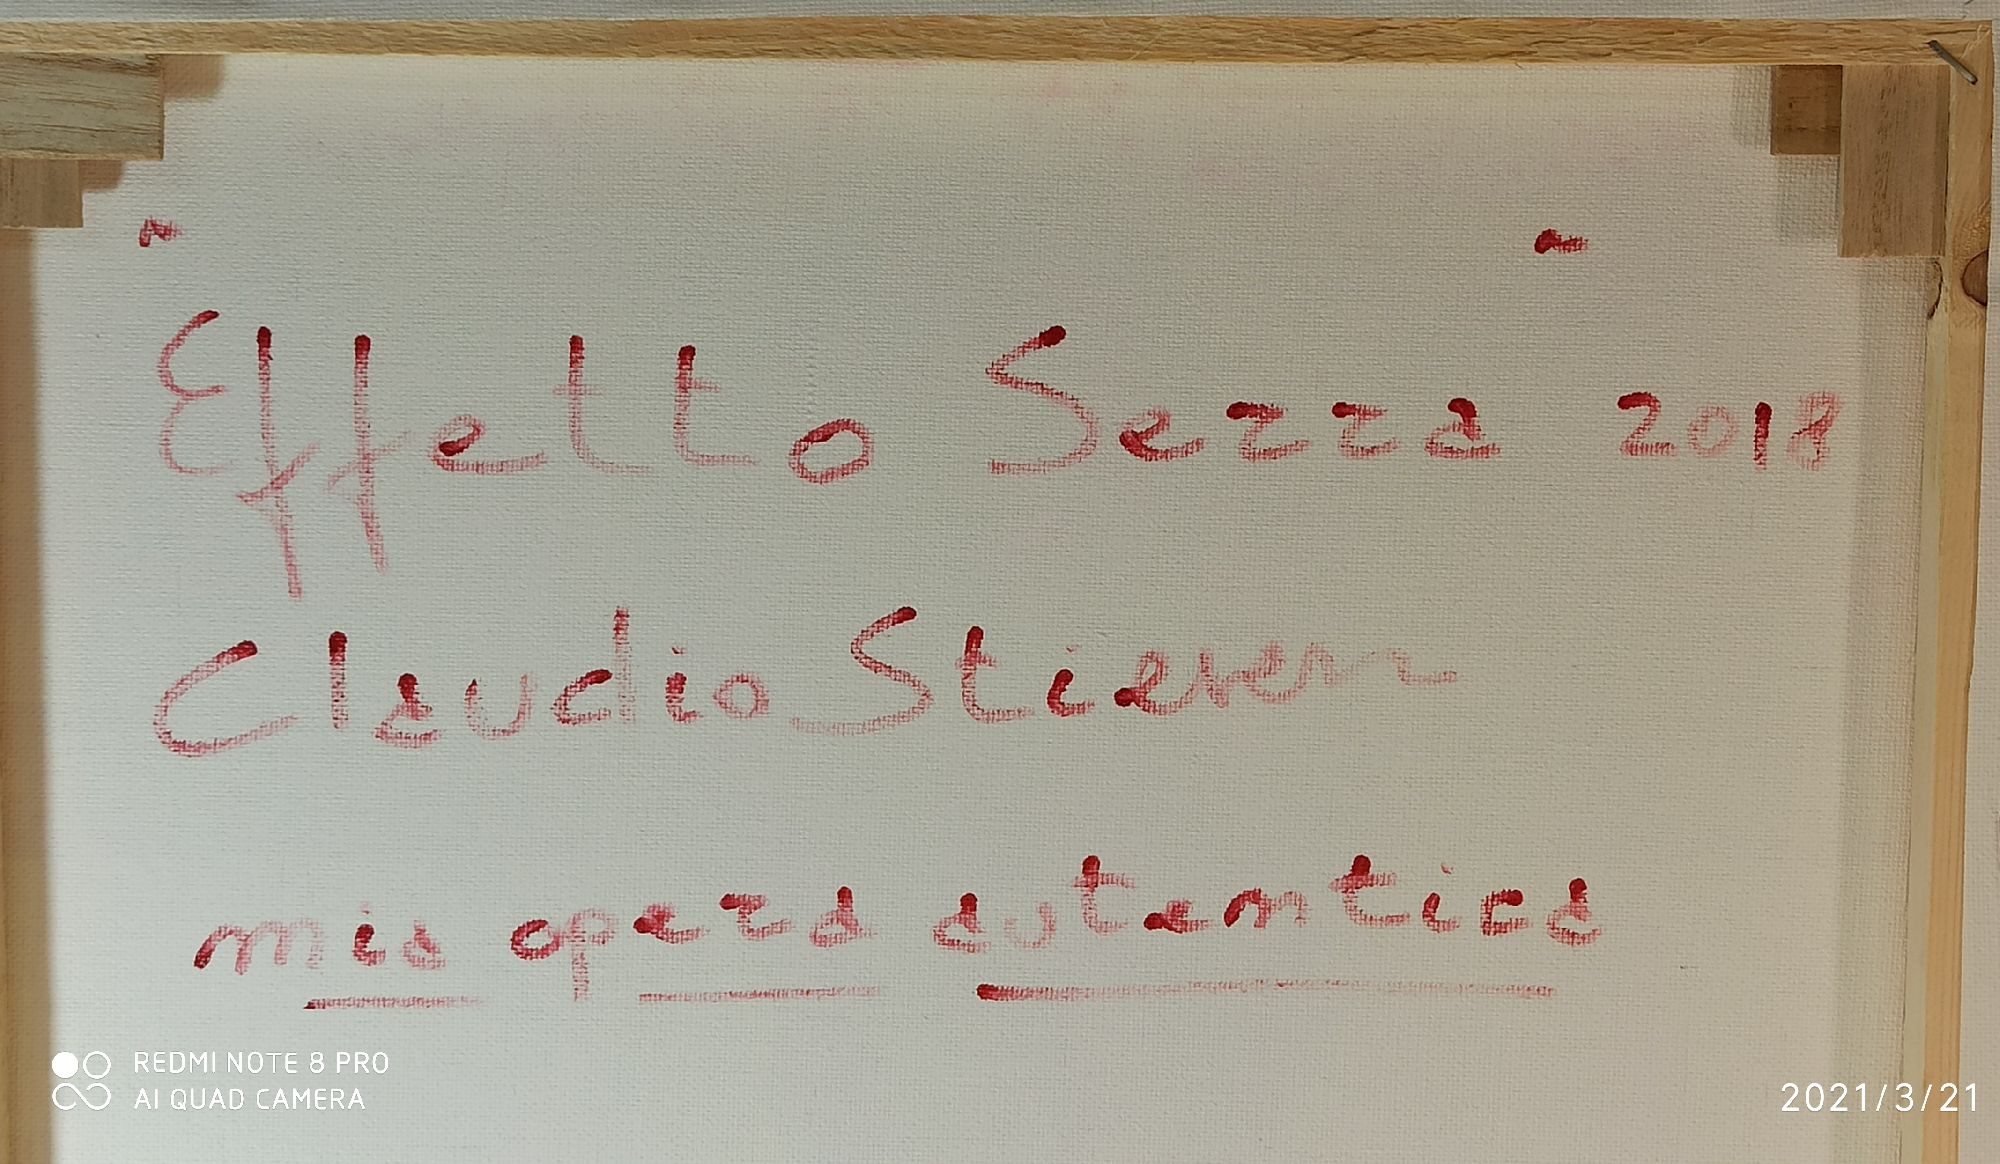 " "
Effetto Sezza 2018
Claudio Stieven
mia opera autentica
REDMI NOTE 8 PRO
AI QUAD CAMERA
2021/3/21